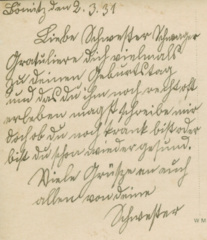 Dömitz den 2.3.31
Liebe Schwester Schwager
Gratuliere Dich vielmals
zu deinen Geburtstag
und das du ihn noch recht oft
erleben magst schreibe mir
doch ob du noch krank bist oder
bist du schon wieder gesund.
Viele Grüsze an euch
allen von deine
Schwester